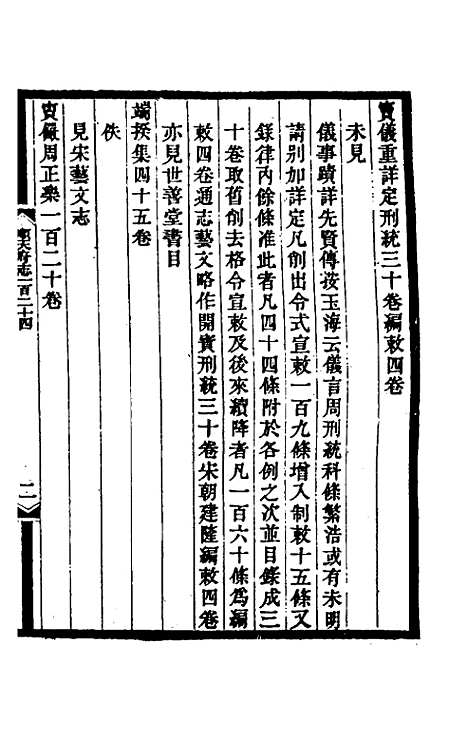 竇儀重詳定刑統三十卷編敕四卷
未見
儀事蹟詳先賢傳按玉海云儀言周刑統科條繁浩或有未明
請別加詳定凡削出令式宣敕一百九條增入制敕十五條又
錄律內餘條准此者凡四十四條附於各例之次並目錄成三
十卷取舊削去格令宣敕及後來續降者凡一百六十條為編
敕四卷通志藝文略作開寶刑統三十卷宋朝建隆編敕四卷
亦見世善堂書目
端揆集四十五卷
佚
見宋藝文志
竇儼周正樂一百二十卷
順天府志一百二十四
二